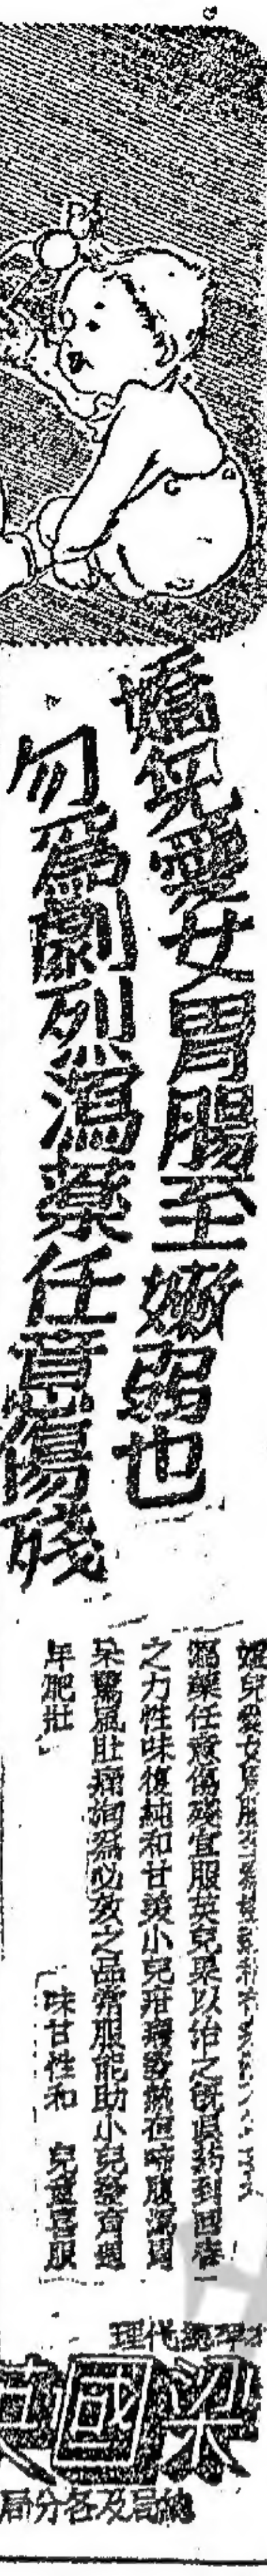 嬌兒愛女胃腸至嫩弱也
勿爲劇烈瀉藥任意傷殘
嬌兒愛女胃腸至
瀉藥任意傷殘宜服英兒果以治之旣具藥到回春
之力性味復純和甘美小兒疳積發熱夜啼腹瀉胃
呆驚風肚痛洵爲必效之品常服能助小兒發育週
年肥壯
味甘性和 兒童喜服
理代總
梁國英
局分各及局總